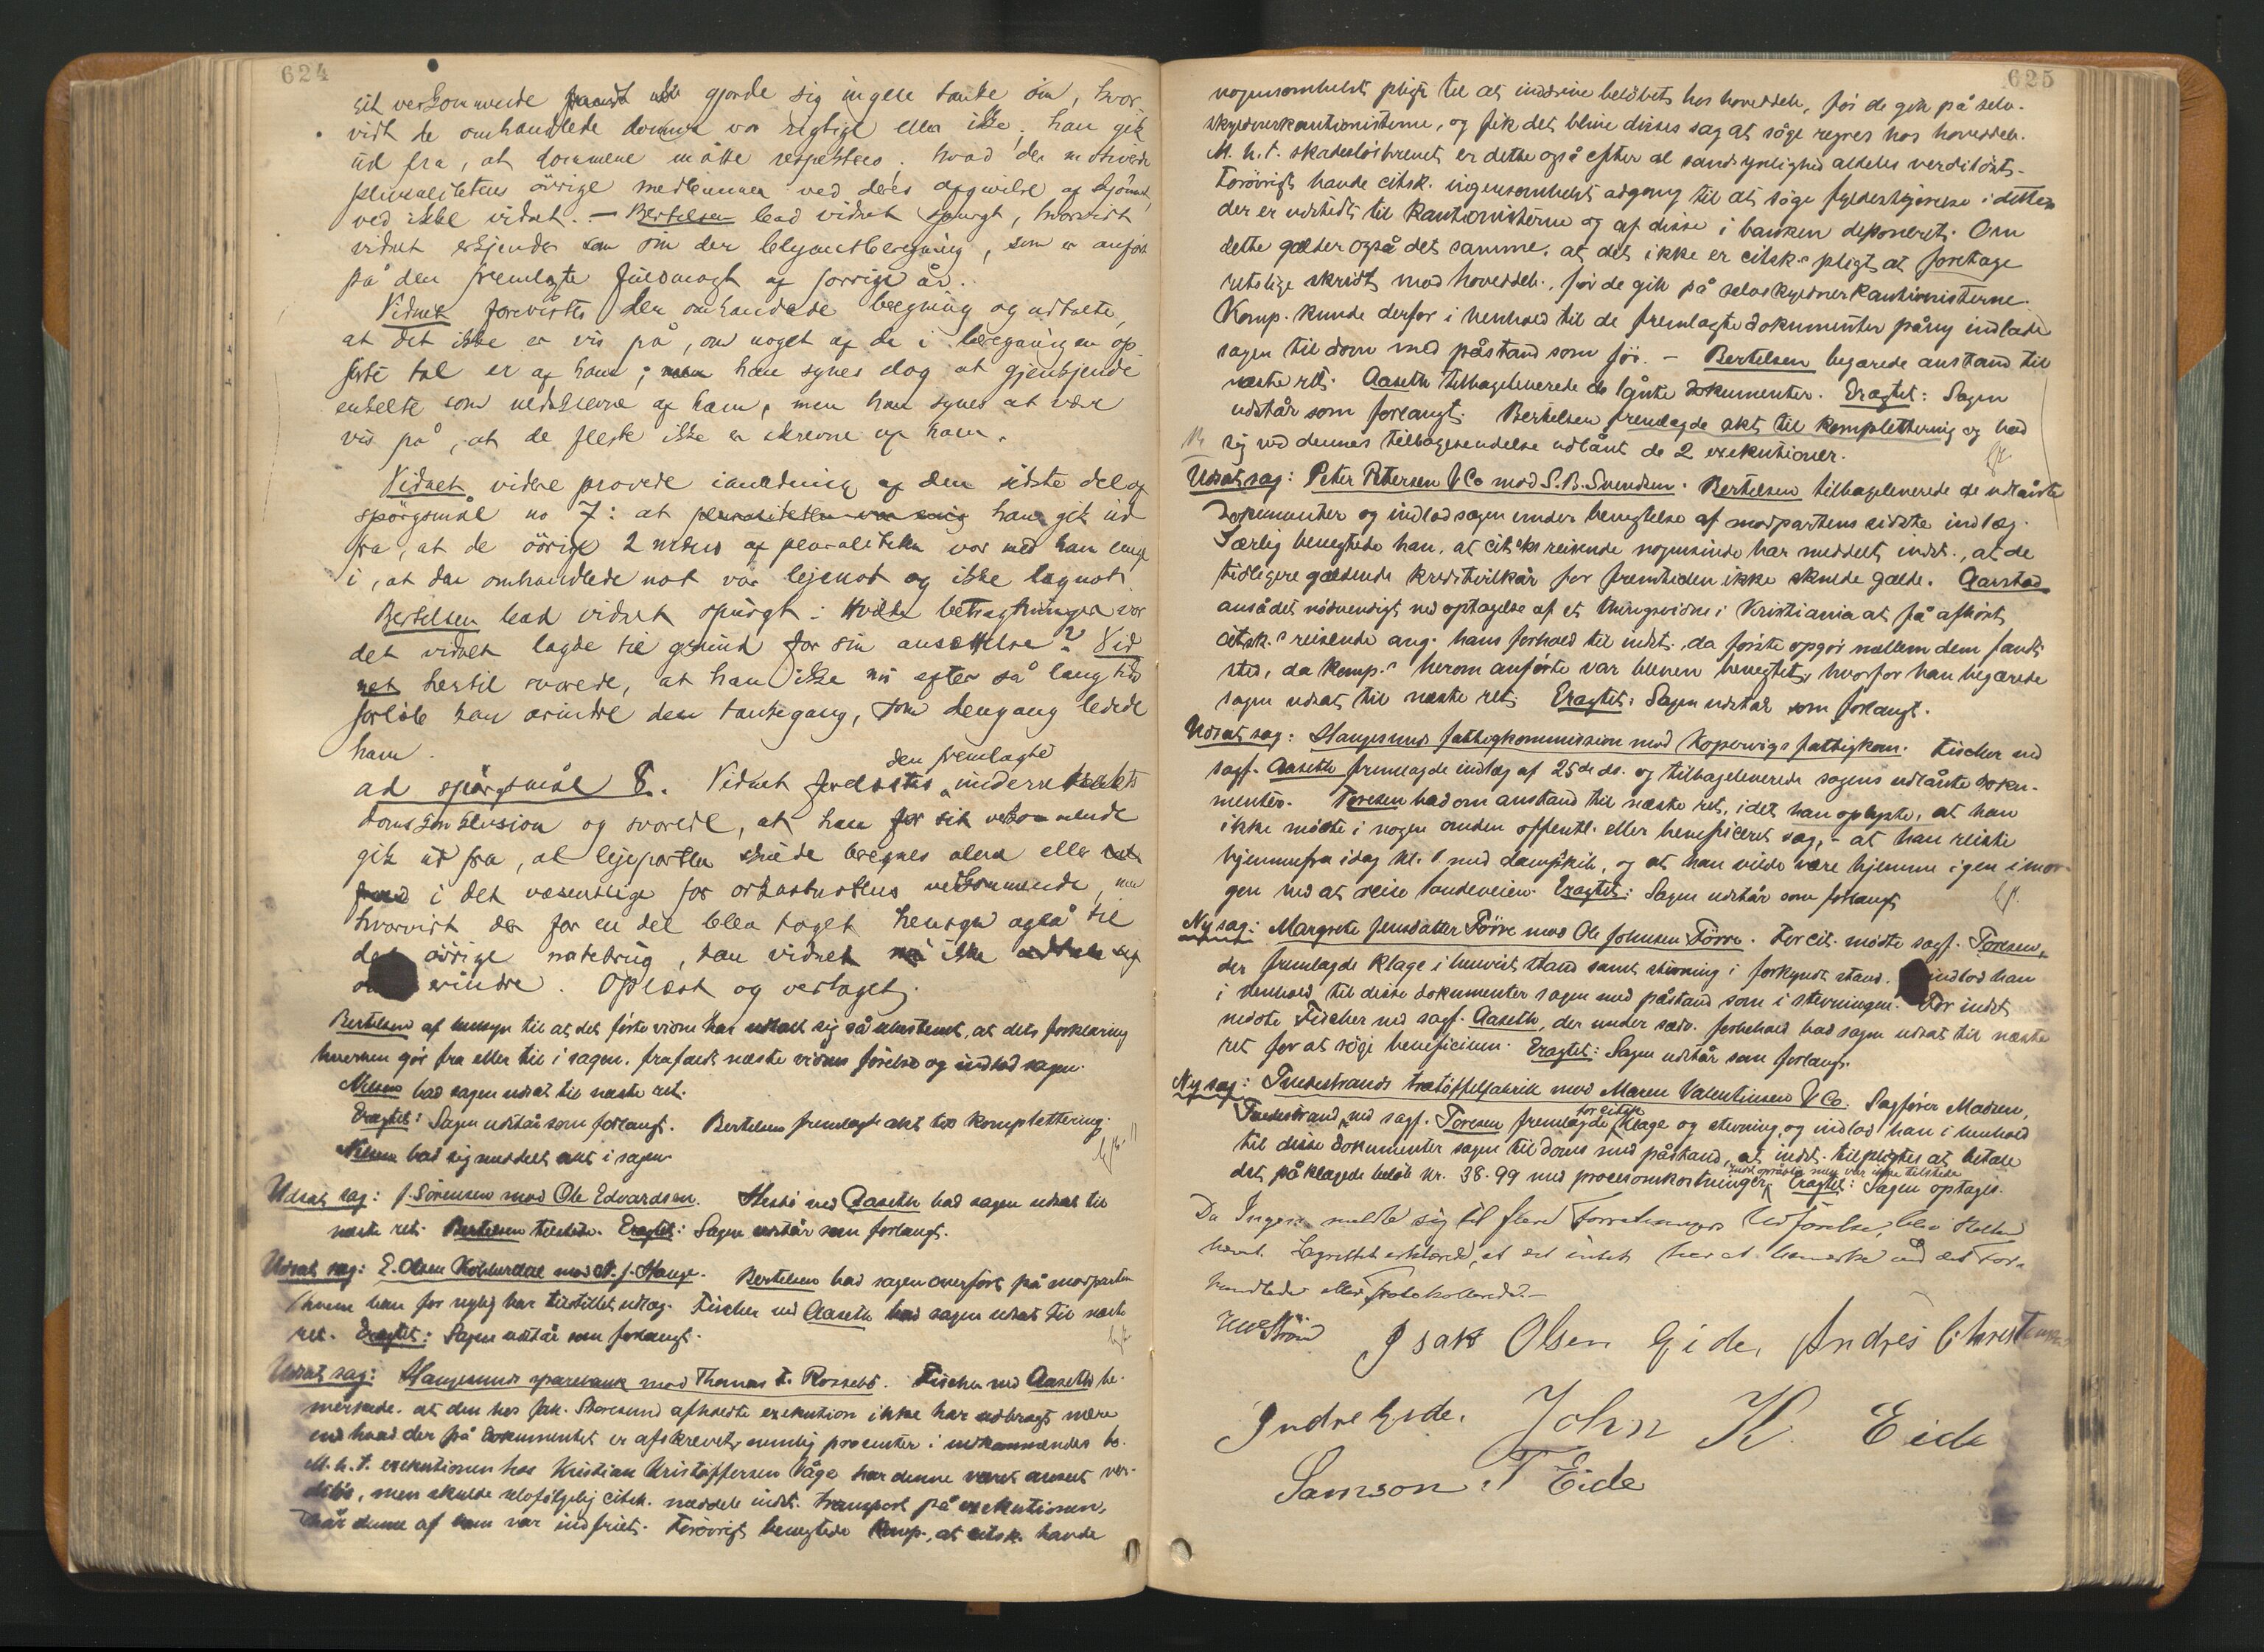 624
sit vedkommende gjorde sig ingen tanke om, hvor-
vidt de omhandlede domme var rigtige eller ikke; han gik
ud fra, at dommene måtte respekteres; hvad der motiverede
pluralitetens øvrige medlemmer ved deres afgivelse af skjønnet,
ved ikke vidnet. — Bertelsen bad vidnet spurgt, hvorvidt
vidnet erkjender som sin den belysnetberegning, som er anført
på den fremlagte fuldmagt af forrige år.
Vidnet forevistes den omhandlede beregning og udtalte,
at det ikke er vis på, om noget af de i beregningen op-
førte tal er af ham; han synes dog at gjenkjende
enkelte som nedskrevne af ham, men han synes at være
vis på, at de fleste ikke er skrevne af ham.
Vidnet videre provede i anledning af den sidste del af
spørgsmål no 7: at pluraliteten var enig han gik ud
fra, at de øvrige 2 mænd af pluraliteten var med ham enige
i, at den omhandlede not var lejenot og ikke lagnot.
Bertelsen bad vidnet spurgt: Hvilke betragtninger var
det vidnet lagde til grund for sin ansættelse? Vid
net hertil svarede, at han ikke nu efter så lang tids
forløb kan erindre den tankegang, som dengang ledede
ham.
den fremlagte
ad spørgsmål 8. Vidnet forelæstes underrets
domskonklusion og svarede, at han for sit vedkommende
gik ud fra, at lejeparten skulde beregnes alene eller
i det væsentlige for orkastnotens vedkommende, men
hvorvidt der for en del blev taget hensyn også til
det øvrige notebrug, kan vidnet nu ikke udtale sig
erindre. Oplæst og vedtaget.
Bertelsen af hensyn til at det første vidne har udtalt sig så ubestemt, at dets forklaring
hverken gør fra eller til i sagen, frafaldt næste vidnes førelse og indlod sagen.
Nilsen bad sagen udsat til næste ret.
Eragtet: Sagen udstår som forlangt. Bertelsen fremlagde akt til komplettering.
Nilsen bad sig meddelt akt i sagen.
Udsat sag: J. Sørensen mod Ole Edvardsen. Hestø ved Aaseth bad sagen udsat til
næste ret. Bertelsen tilstede. Eragtet: Sagen udstår som forlangt.
Udsat sag: E. Olsen Kolberdal mod N. J. Hauge. Bertelsen bad sagen overført på modparten
hvem han for nylig har tilstillet udlæg. Fischer ved Aaseth bad sagen udsat til næste
ret. Eragtet: Sagen udstår som forlangt.
Udsat sag: Haugesunds sparebank mod Thomas T. Rossebø. Fischer ved Aaseth be-
mærkede, at den hos Jak. Storesund afholdte exekution ikke har udbragt mere
end hvad der på dokumentet er afskrevet, nemlig procenter i indkommendes bo.
M. h. t. exekutionen hos Kristian Kristoffersen Våge har denne været anseet ver-
diløs, men skulde selvfølgelig citsk. meddele indst. transport på exekutionen,
når denne af ham var indfriet. Forøvrigt benegtede komp., at citsk. havde
625
nogensomhelst pligt til at inddrive beløbet hos hoveddeb., før de gik på selv-
skyldnerkautionisterne, og fik det blive disses sag at søge regres hos hoveddeb.
M. h. t. skadesløsbrevet er dette også efter al sandsynlighed aldeles verdiløst.
Forøvrigt havde citsk. ingensomhelst adgang til at søge fyldestgjørelse i dette
der er udstedt til kautionisterne og af disse i banken deponeret. Om
dette gælder også det samme, at det ikke er citsk.s pligt at foretage
retslige skridt mod hoveddeb., før de gik på selvskyldnerkautionisterne.
Komp. kunde derfor i henhold til de fremlagte dokumenter påny indlade
sagen til dom med påstand som før. — Bertelsen begærede anstand til
næste ret. Aaseth tilbageleverede de lånte dokumenter. Eragtet: Sagen
udstår som forlangt. Bertelsen fremlagde akt til komplettering og bad
sig ved dennes tilbagesendelse udlånt de 2 exekutioner.
Udsat sag: Peter Petersen & Co mod S. B. Svendsen. Bertelsen tilbageleverede de udlånte
dokumenter og indlod sagen under benegtelse af modpartens sidste indlæg.
Særlig benegtede han, at citsk.s reisende nogensinde har meddelt indst., at de
tidligere gældende kreditvilkår for fremtiden ikke skulde gælde. Aarstad
anså det nødvendigt ved optagelse af et thingsvidne i Kristiania at få afhørt
citsk.s reisende ang. hans forhold til indst., da første opgør mellem dem fandt
sted, da komp.s herom anførte var bleven benegtet, hvorfor han begærede
sagen udsat til næste ret. Eragtet: Sagen udstår som forlangt.
Udsat sag: Haugesunds fattigkommission mod Kopervigs fattigkom. Fischer ved
sagf. Aaseth fremlagde indlæg af 25de ds. og tilbageleverede sagens udlånte doku-
menter. Toresen bad om anstand til næste ret, idet han oplyste, at han
ikke mødte i nogen anden offentl. eller beneficeret sag, – at han reiste
hjemmefra idag kl. 1 med dampskib, og at han vilde være hjemme igen imor-
gen ved at reise landeveien. Eragtet: Sagen udstår som forlangt.
Ny sag: Margrete Jensdatter Førre mod Ole Johnsen Førre. For cit. mødte sagf. Toresen,
der fremlagde klage i henvist stand samt stevning i forkyndt stand. indlod han
i henhold til disse dokumenter sagen med påstand som i stevningen. For indst.
mødte Fischer ved sagf. Aaseth, der under sædv. forbehold bad sagen udsat til næste
ret for at søge beneficium. Eragtet: Sagen udstår som forlangt.
Ny sag: Tvedestrands trætøffelfabrik mod Maren Valentinsen & Co. Sagfører Madsen,
for citsk.
Tvedestrand ved sagf. Toresen fremlagde klage og stevning, og indlod han i henhold
til disse dokumenter sagen til doms med påstand, at indst. tilpligtes at betale
indst. opråbtes men var ikke tilstede
det påklagede beløb kr. 38.99 med procesomkostninger. Eragtet: Sagen optages.
Da Ingen meldte sig til flere Forretningers Udførelse, blev Retten
hævet. Lagrettet erklærede, at det intet har at bemærke ved det For-
handlede eller Protokollerede.—
Isak Olsen Eide, Andres Christensen
Indre Eide. John K. Eide
Samson T Eide